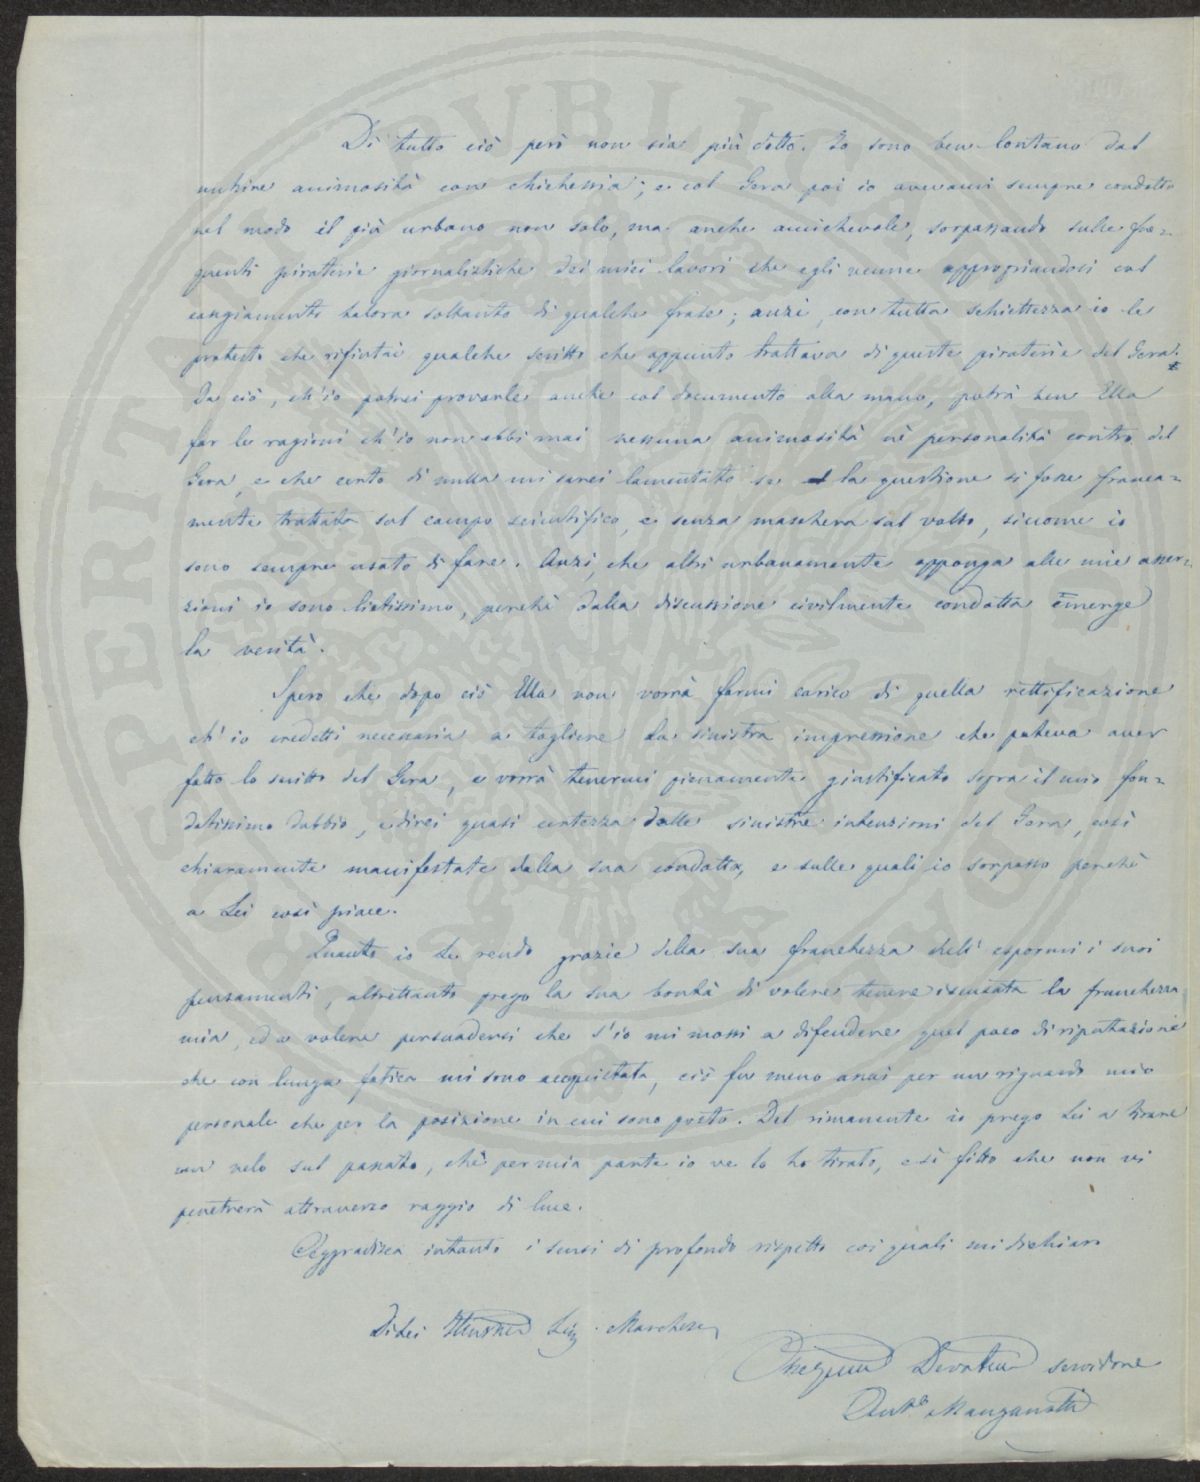 Di tutto ciò però non sia più detto. Io sono ben lontano dal
nutrire animosità con chichessia; e col Gera poi io avevami sempre condotto
nel modo il più urbano non solo, ma anche amichevole, sorpassando sulle fre-
quenti piraterie giornalistiche dei miei lavori che egli venne appropriandosi col
cangiamento talora soltanto di qualche frase; anzi, con tutta schiettezza io le
protesto che rifiutai qualche scritto che appunto trattava di queste piraterie del Gera.
Da ciò, ch'io potrei provarle anche col documento alla mano, potrà ben Ella
far le ragioni ch'io non ebbi mai nessuna animosità nè personalità contro del
Gera, e che certo di nulla mi sarei lamentato se la questione si fosse franca-
mente trattata sul campo scientifico, e senza maschera sul volto, siccome io
sono sempre usato di fare. Anzi, che altri urbanamente opponga alle mie asser-
zioni io sono lietissimo, perchè dalla discussione civilmente condotta emerge
la verità.
Spero che dopo ciò Ella non vorrà farmi carico di quella rettificazione
ch'io credetti necessaria a togliere la sinistra impressione che poteva aver
fatto lo scritto del Gera, e vorrà tenermi pienamente giustificato sopra il mio fon-
datissimo dubbio, e direi quasi certezza delle sinistre intenzioni del Gera, così
chiaramente manifestate dalla sua condotta, e sulle quali io sorpasso perchè
a Lei così piace.
Quanto io Le rendo grazie della sua franchezza nell'espormi i suoi
pensamenti, altrettanto prego la sua bontà di volere tenere iscusata la franchezza
mia, ed a volere persuadersi che s'io mi mossi a difendere quel poco di riputazione
che con lunga fatica mi sono acquistata, ciò fu meno assai per un riguardo mio
personale che per la posizione in cui sono posto. Del rimanente io prego Lei a tirare
un velo sul passato, chè per mia parte io ve lo ho tirato, e sì fitto che non vi
penetrerà attraverso raggio di luce.
Aggradisca intanto i sensi di profondo rispetto coi quali mi dichiaro
Di Lei Marchese
Devotissimo servidore
Ant.º Manganotti
PUBLICA